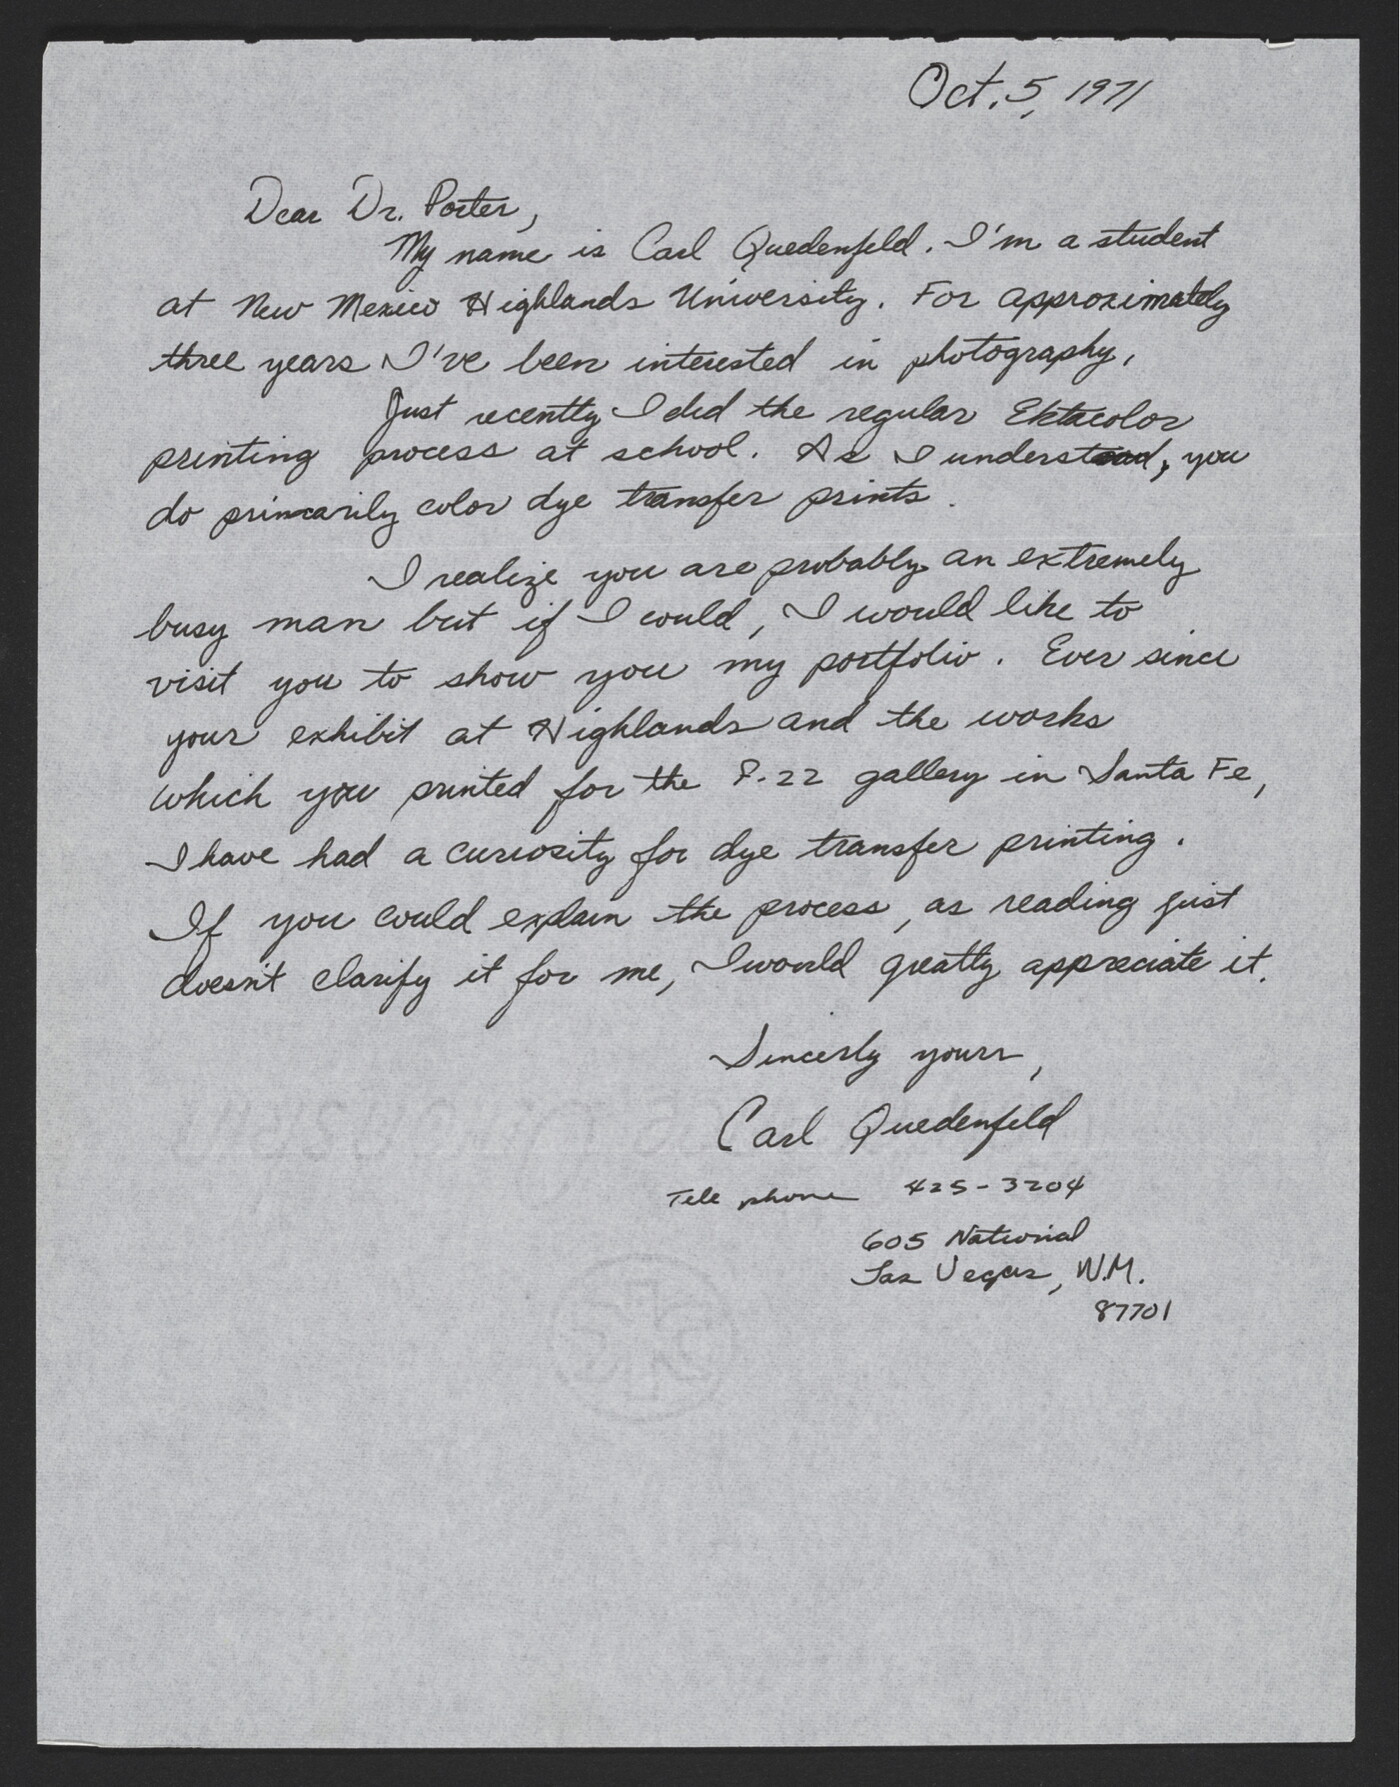 Oct. 5, 1971
Dear Dr. Porter,
My name is Carl Quedenfeld. I'm a student
at New Mexico Highlands University. For approximately
three years I've been interested in photography.
Just recently I did the regular Ektacolor
printing process at school. As I understand, you
do primarily color dye transfer prints.
I realize you are probably an extremely
busy man but if I could, I would like to
visit you to show you my portfolio. Ever since
your exhibit at Highlands and the works
which you printed for the F-22 gallery in Santa Fe,
I have had a curiosity for dye transfer printing.
If you could explain the process, as reading just
doesn't clarify it for me, I would greatly appreciate it.
Sincerly yours,
Carl Quedenfeld
Telephone 425-3204
605 National
Las Vegas, N.M.
87701